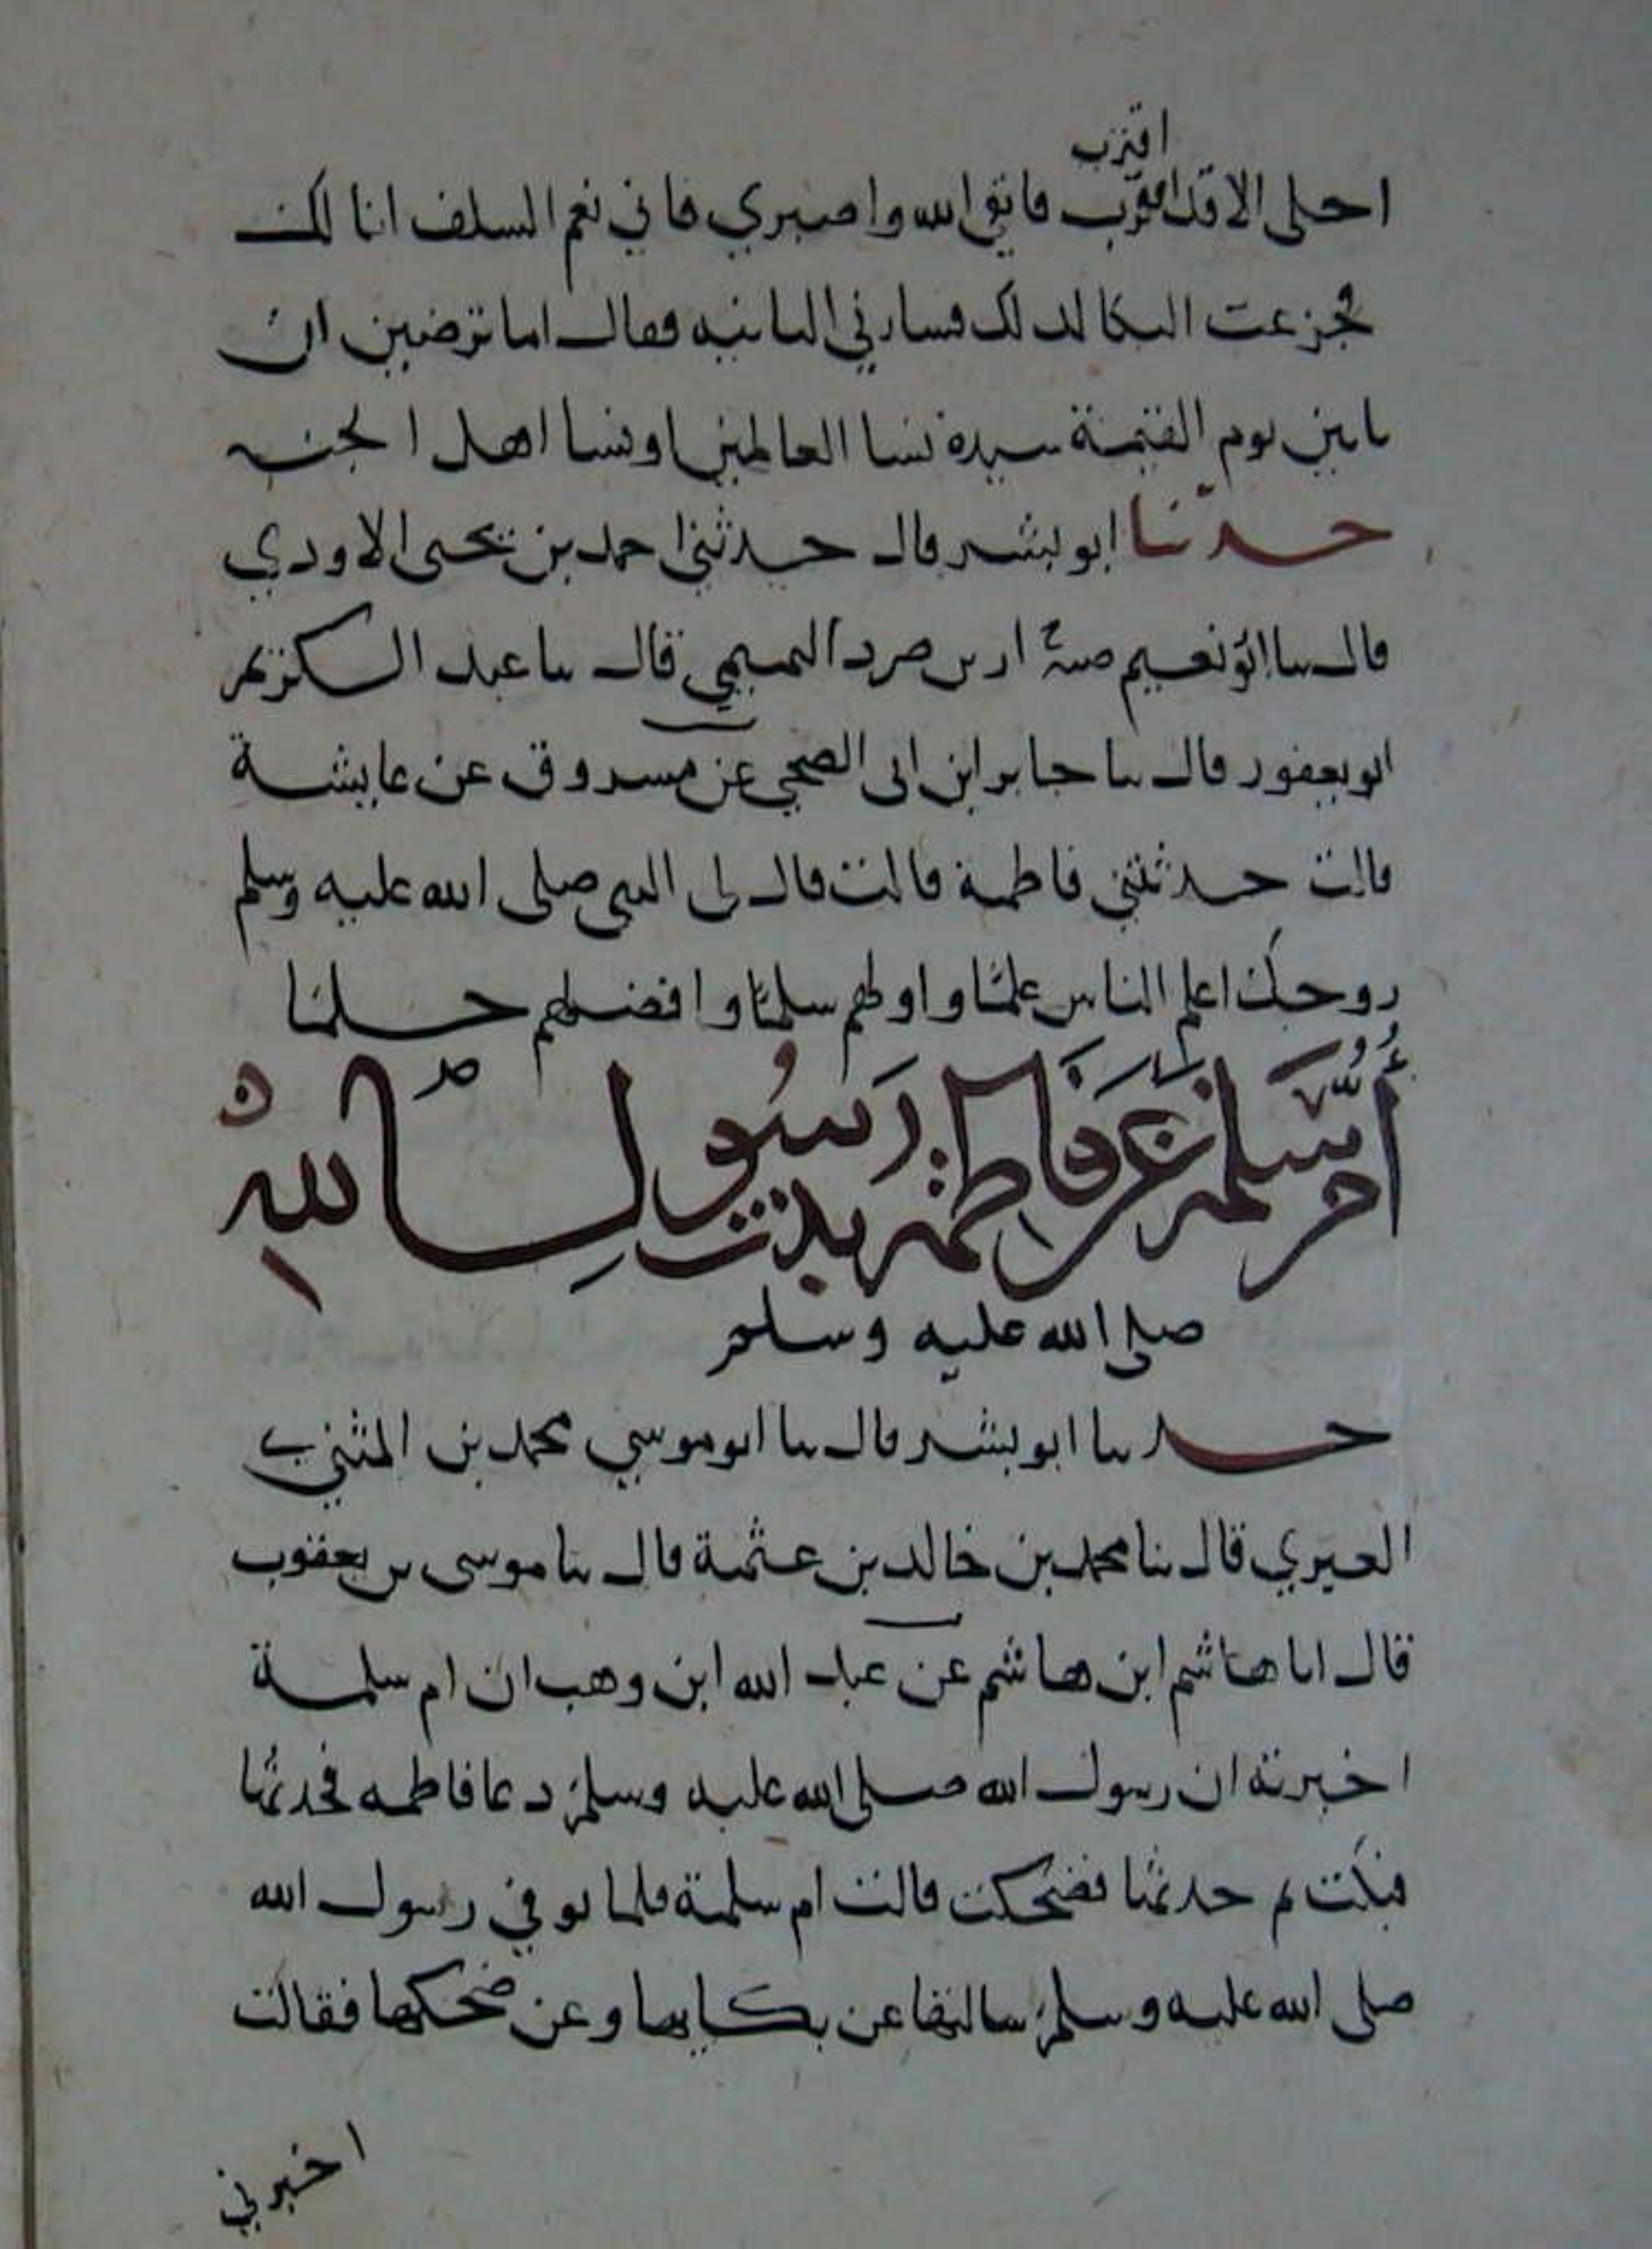 اقترب
احلى الا قد اقترب فاتقي الله واصبري فاني نعم السلف انا لك
فجزعت البكا لذلك فسارني الثانيه فقال اما ترضين ان
تاتين يوم القيمة سيدة نسا العالمين او نسا اهل الجنه
حدثنا ابو بشر قال حدثني احمد بن يحيى الاودي
قال نا ابو نعيم ضرار بن صرد التميمي قال نا عبد الكريم
ابو يعفور قال نا جابر ابن ابى الضحى عن مسروق عن عايشة
قالت حدثتني فاطمة قالت قال لى النبى صلى الله عليه وسلم
زوجك اعلم الناس علما واولهم سلما وافضلهم حلما
أم سلمة عن فاطمة بنت رسول الله
صلى الله عليه وسلم
حدثنا ابو بشر قال نا ابو موسي محمد بن المثنى
العيزي قال نا محمد بن خالد بن عثمة قال نا موسى بن يعقوب
قال انا هاشم ابن هاشم عن عبد الله ابن وهب ان ام سلمة
اخبرته ان رسول الله صلى الله عليه وسلم دعا فاطمه فحدثها
فبكت ثم حدثها فضحكت قالت ام سلمة فلما توفي رسول الله
صلى الله عليه وسلم سالتها عن بكايها وعن ضحكها فقالت
اخبرني